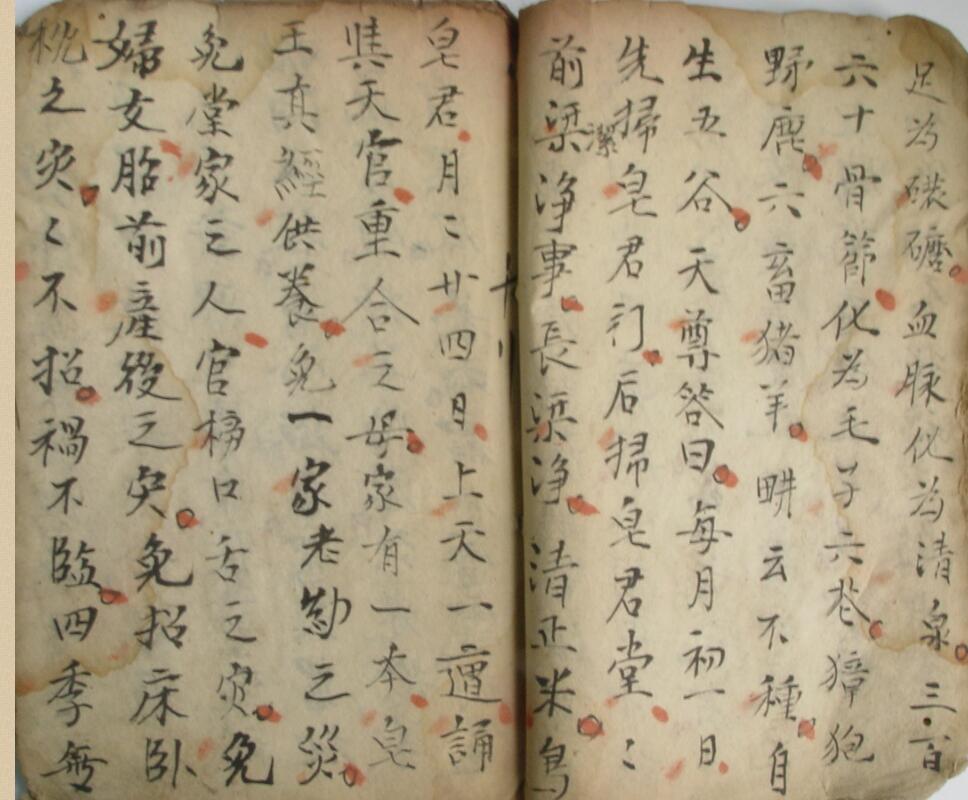 足為磉磨血脉化為清泉三百
六十骨節化為毛子六茬獐狍
野鹿六畜猪羊畊云不種自
生五谷天尊答曰每月初一日
先掃皂君门后掃皂君堂〻
前梁潔净事長梁净清正米鳥
皂君月〻廿四日上天一遭誦
其天官重合之母家有一本皂
王真經供養免一家老幼之災
免堂家之人官榜口舌之灾免
婦女胎前產後之灾免招床卧
枕之灾〻不招禍不臨四季無